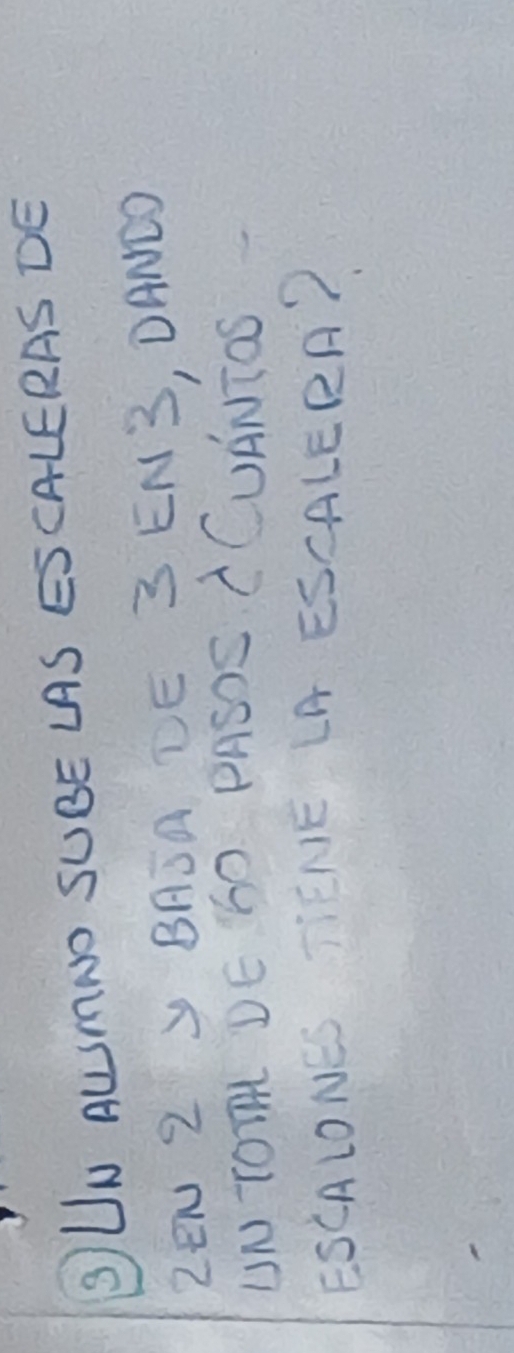 3) UN ALUMNO SUBE LAS ESCALERAS DE
2 EN 2 Y BAJA DE 3 EN 3, DANDO
UN TOTAL DE 60 PASOS ¿CUÁNTOS -
ESCALONES TIENE LA ESCALERA?